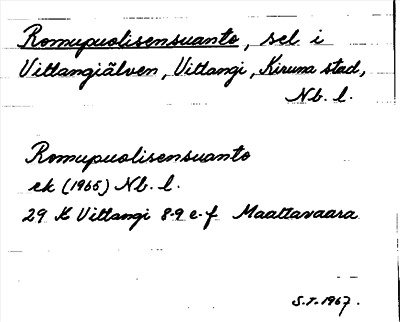 Romupuolisensuanto, sel i
Vittangiälven, Vittangi, Kiruna stad,
Nb. l.
Romupuolisensuanto
ek (1965) Nb. l.
29 K Vittangi 8-9 e-f Maattavaara
S.T. 1967.